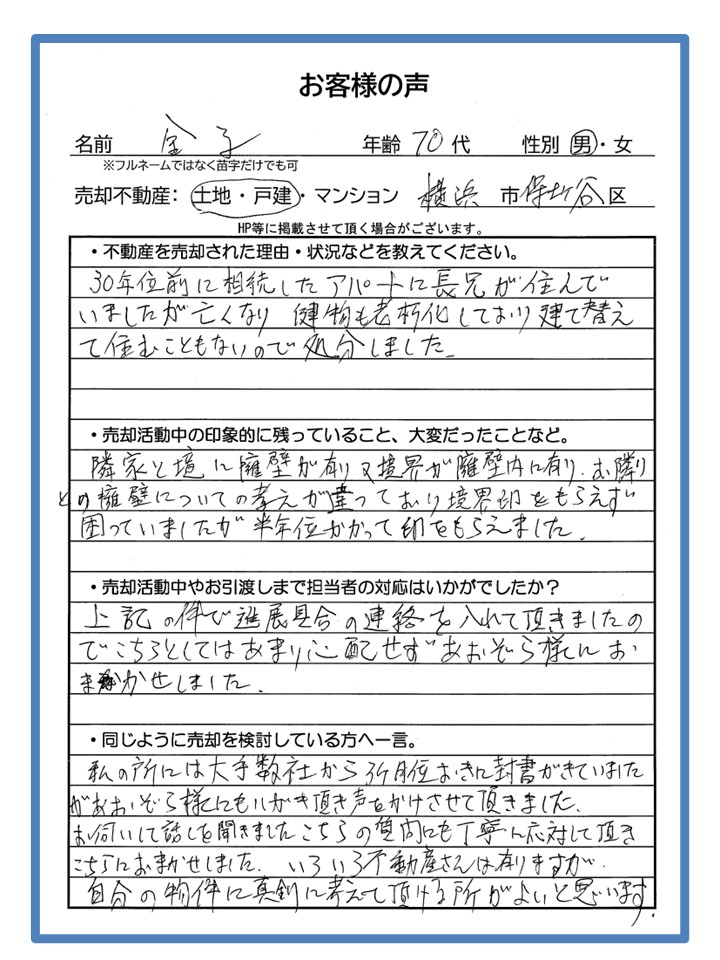 お客様の声
名前 金子 年齢 70代 性別 男・女
※フルネームではなく苗字だけでも可
売却不動産: 土地・戸建・マンション 横浜 市 保土谷 区
HP等に掲載させて頂く場合がございます。
・不動産を売却された理由・状況などを教えてください。
30年位前に相続したアパートに長兄が住んで
いましたが亡くなり 健物も老朽化しており建て替え
て住むこともないので処分しました。
・売却活動中の印象的に残っていること、大変だったことなど。
隣家と境に擁壁が有り又境界が擁壁内に有り、お隣り
との擁壁についての考えが違っており境界印をもらえず
困っていましたが半年位かかって印をもらえました。
・売却活動中やお引渡しまで担当者の対応はいかがでしたか?
上記の件で進展具合の連絡を入れて頂きましたの
でこちらとしてはあまり心配せずあおぞら様にお
まかせしました。
・同じように売却を検討している方へ一言。
私の所には大手数社から3ヶ月位おきに封書がきていました
があおぞら様にもハガキ頂き声をかけさせて頂きました。
お伺いして話しを聞きましたこちらの質問にも丁寧に応対して頂き
こちらにおまかせしました。いろいろ不動産さんは有りますが、
自分の物件に真剣に考えて頂ける所がよいと思います。